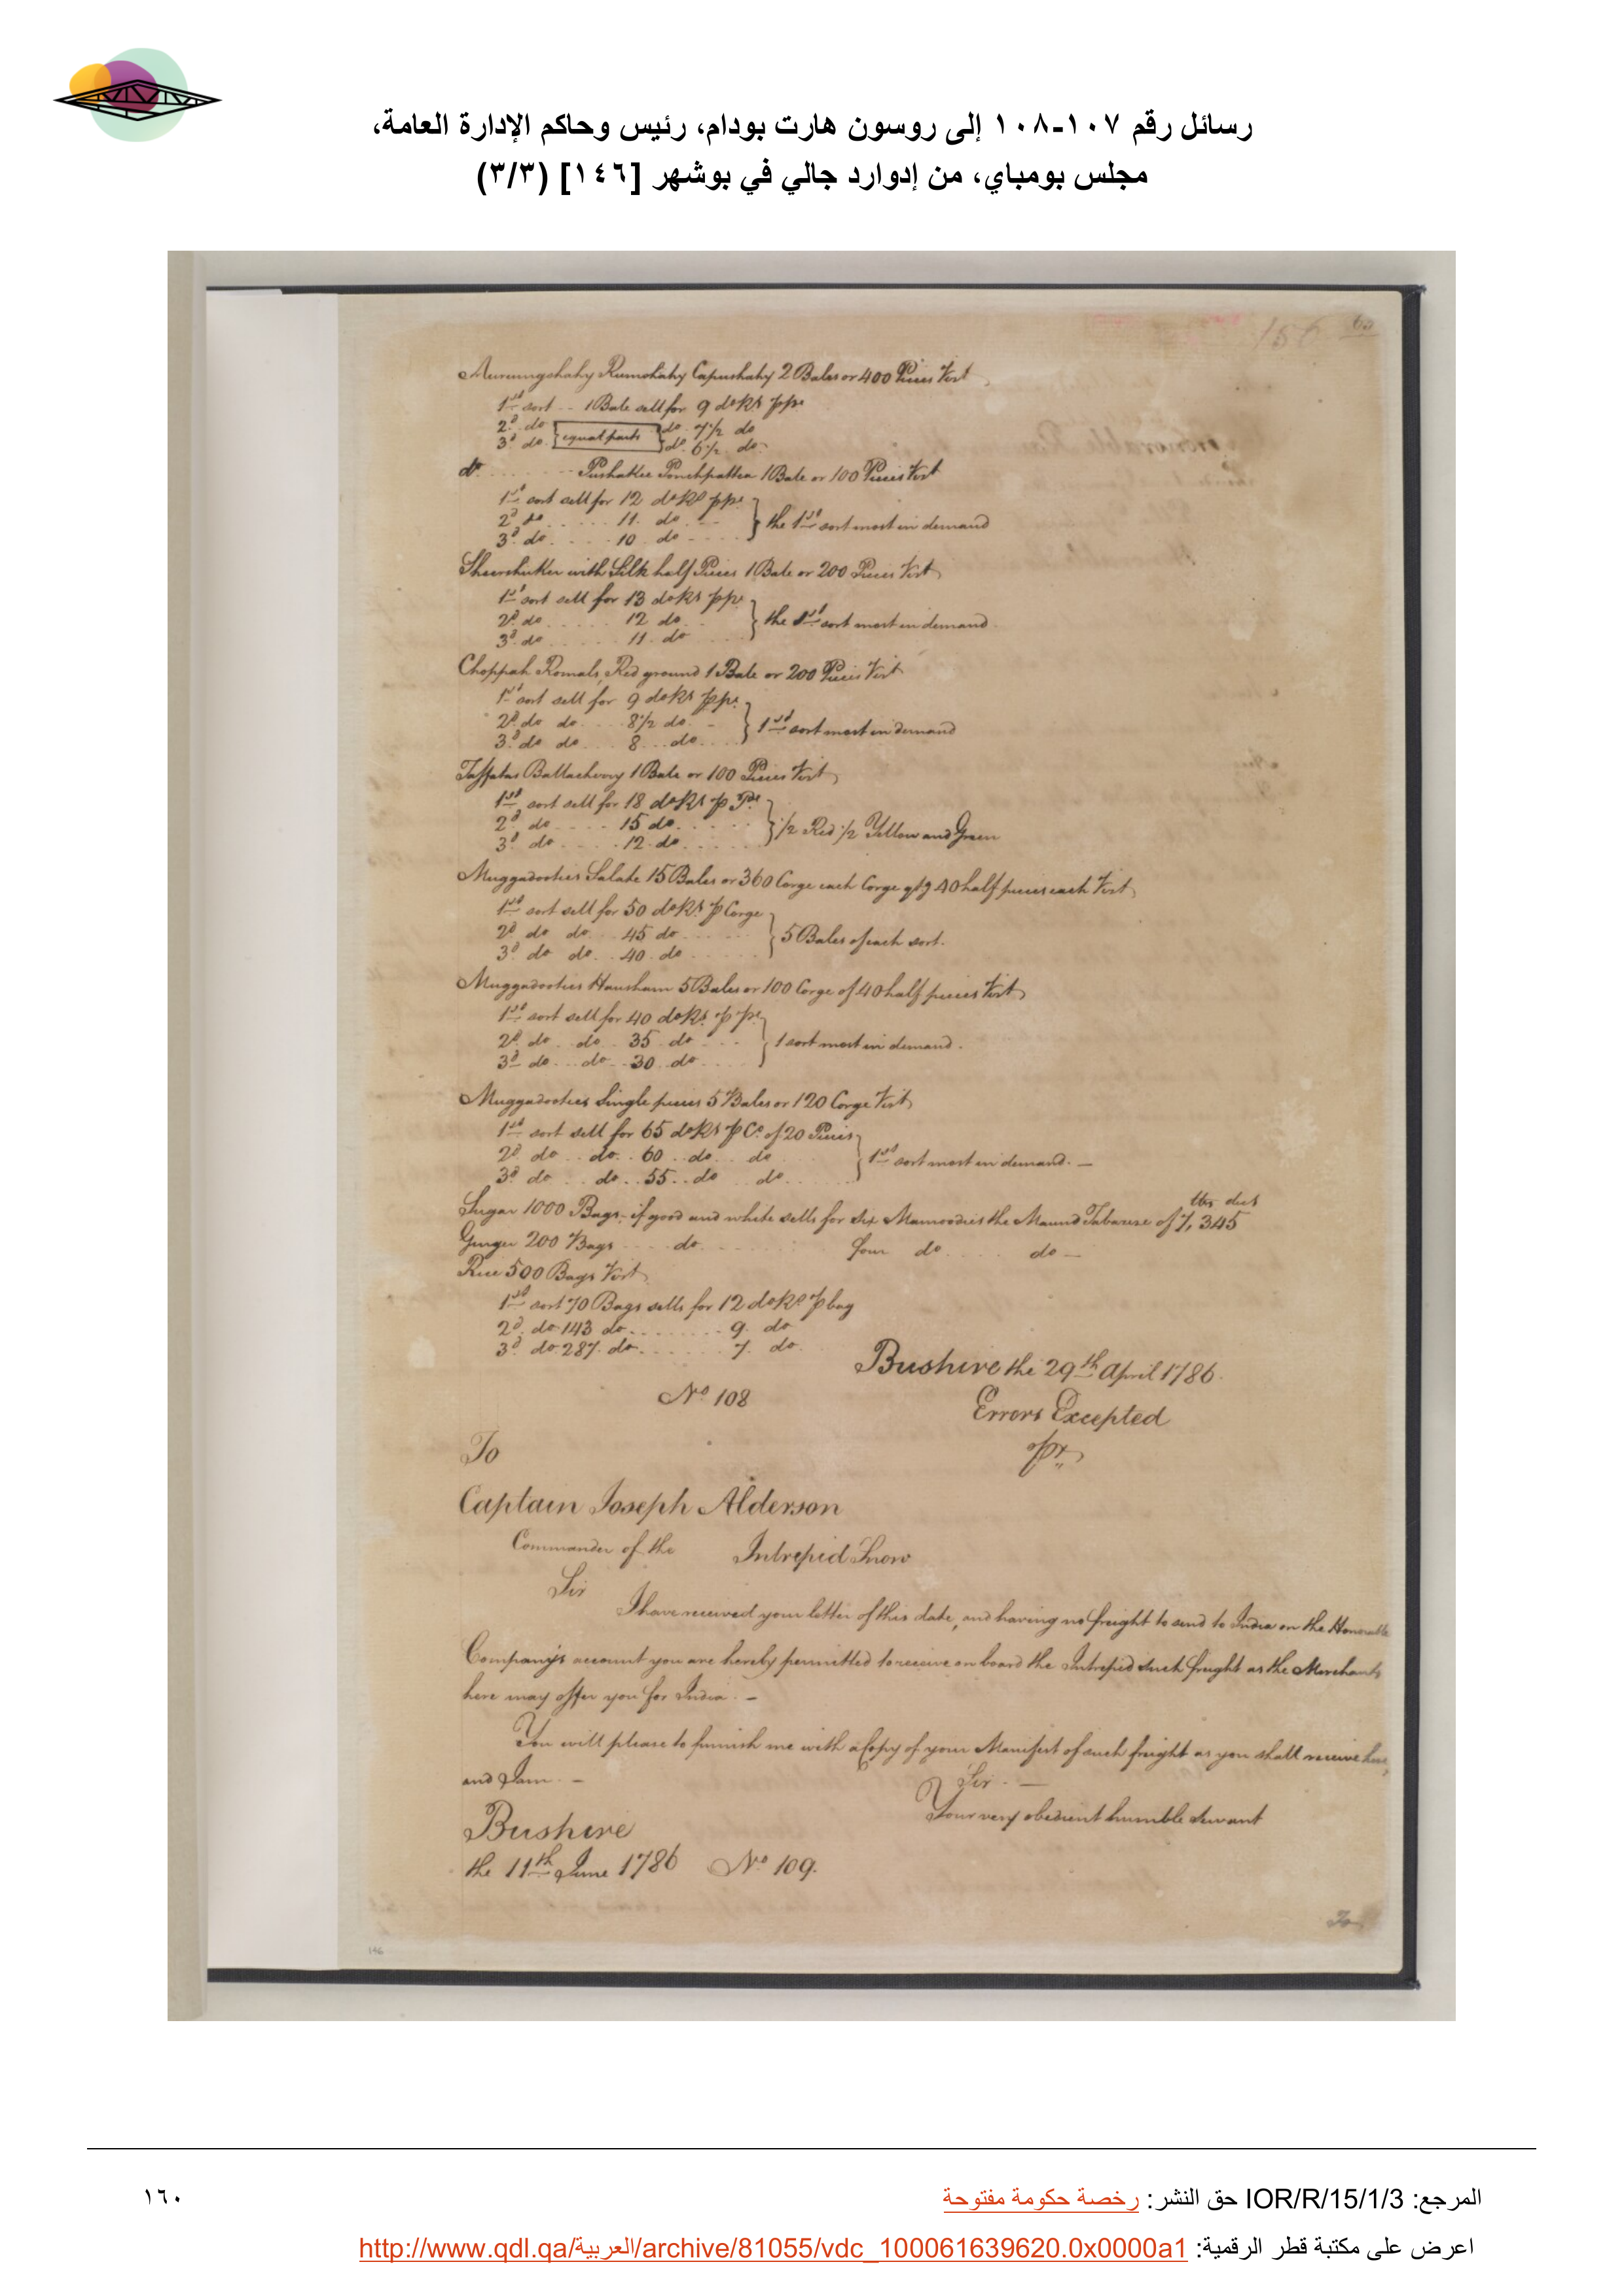 رسائل رقم ١٠٧-١٠٨ إلى روسون هارت بودام، رئيس وحاكم الإدارة العامة،
مجلس بومباي، من إدوارد جالي في بوشهر [١٤٦] (٣/٣)
156 60
Capushahy 2 Bales or 400 Pieces Vizt
1st sort -- 1 Bale sell for 9 do Rs p ps
2d do equal parts do 7 1/2 do
3d do do 6 1/2 do
do Pushakee Ponchpattea 1 Bale or 100 Pieces Vizt
1st sort sell for 12 do Rs p ps
2d do 11 do the 1st sort most in demand
3d do 10 do
with Silk half Pieces 1 Bale or 200 Pieces Vizt
1st sort sell for 13 do Rs p ps
2d do 12 do the 1st sort most in demand
3d do 11 do
Choppah Romals, Red ground 1 Bale or 200 Pieces Vizt
1st sort sell for 9 do Rs p ps
2d do do 8 1/2 do 1st sort most in demand
3d do do 8 do
Taffatas 1 Bale or 100 Pieces Vizt
1st sort sell for 18 do Rs p Ps
2d do 15 do 1/2 Red 1/2 Yellow and Green
3d do 12 do
Muggadooties Salahe 15 Bales or 360 Corge each Corge qtg 40 half pieces each Vizt
1st sort sell for 50 do Rs p Corge
2d do do 45 do 5 Bales of each sort.
3d do do 40 do
Muggadooties Hausham 5 Bales or 100 Corge of 40 half pieces Vizt
1st sort sell for 40 do Rs p ps
2d do do 35 do 1 sort most in demand.
3d do do 30 do
Muggadooties Single pieces 5 Bales or 120 Corge Vizt
1st sort sell for 65 do Rs p Co of 20 Pieces
2d do do 60 do do 1st sort most in demand. —
3d do do 55 do do
Sugar 1000 Bags - if good and white sells for six Mamoodies the Maund Tabareze of 7, 345
Ginger 200 Bags do four do do —
Rice 500 Bags Vizt
1st sort 70 Bags sells for 12 do Rs p bag
2d do 143 do 9 do
3d do 287 do 7 do
Bushire the 29th April 1786.
No 108
Errors Excepted
To
Captain Joseph Alderson
Commander of the Intrepid Snow
Sir
I have received your letter of this date, and having no freight to send to India on the Honorable
Company's account you are hereby permitted to receive on board the Intrepid such freight as the Merchants
here may offer you for India. —
You will please to furnish me with a Copy of your Manifest of such freight as you shall receive here,
and I am. —
Sir. —
Your very obedient humble Servant
Bushire
the 11th June 1786 No 109.
To
146
المرجع: IOR/R/15/1/3 حق النشر: رخصة حكومة مفتوحة
١٦٠
اعرض على مكتبة قطر الرقمية: http://www.qdl.qa/العربية/archive/81055/vdc_100061639620.0x0000a1